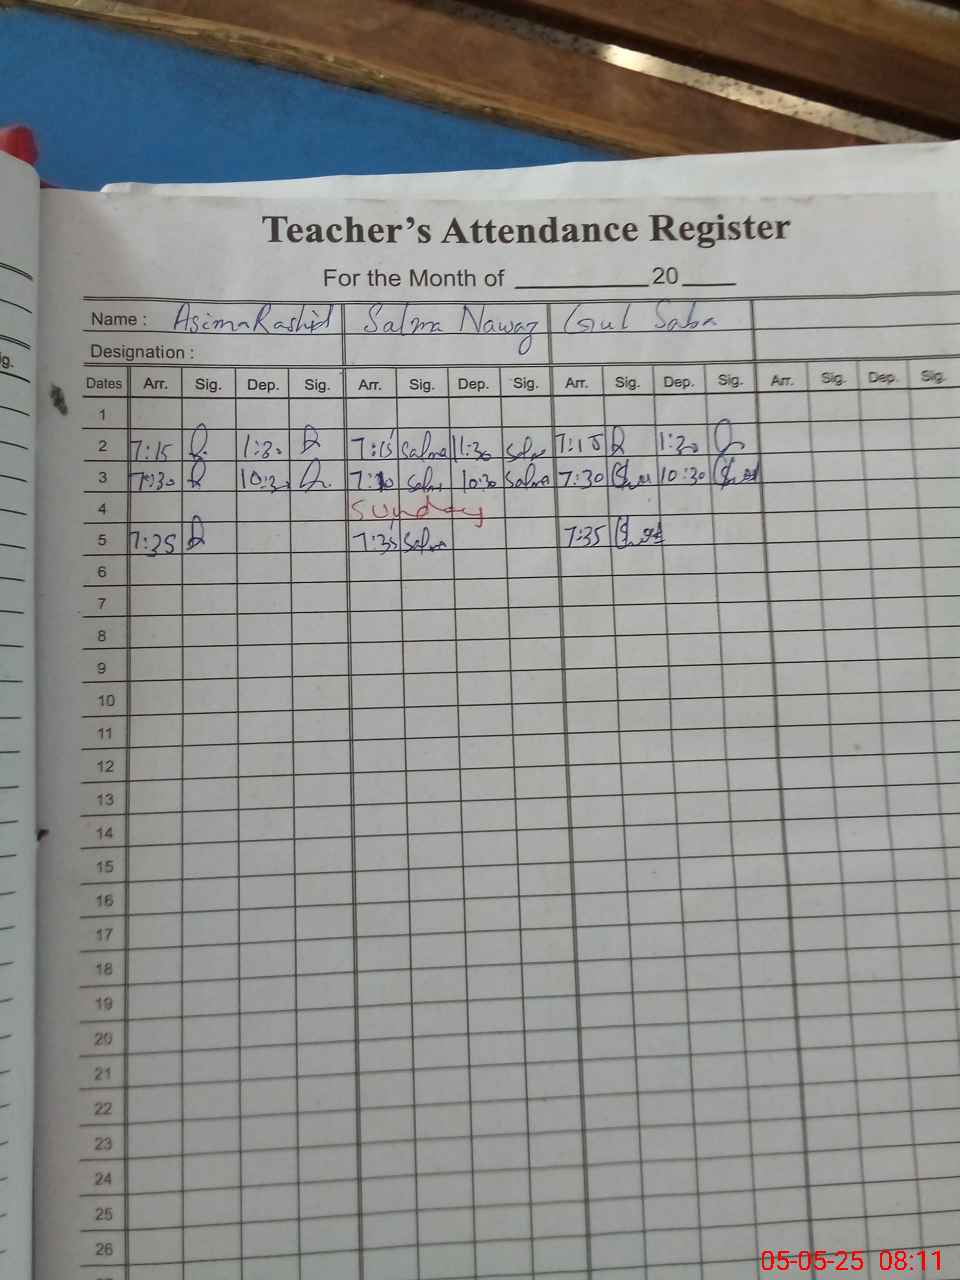 Teacher's Attendance Register
For the Month of ________ 20 ____
Name : Asima Rashid Salma Nawaz Gul Saba
Designation :
Dates Arr. Sig. Dep. Sig. Arr. Sig. Dep. Sig. Arr. Sig. Dep. Sig. Arr. Sig. Dep. Sig.
1
2 7:15 1:30 7:15 Salma 1:30 Salma 7:15 1:30
3 7:30 10:30 7:30 Salma 10:30 Salma 7:30 10:30
4 Sunday
5 7:35 7:35 Salma 7:35
6
7
8
9
10
11
12
13
14
15
16
17
18
19
20
21
22
23
24
25
26
05-05-25 08:11